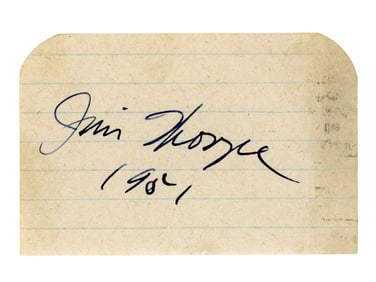 Jim Thorpe
1951